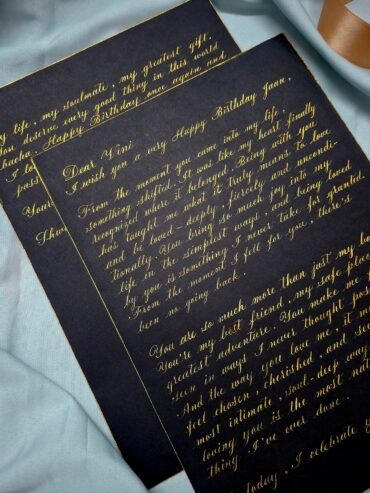 y life, my soulmate, my greatest gift.
You deserve every good thing in this world
Happy Birthday once again and
I lo
pass
Your
Shw
Dear Vini
I wish you a very Happy Birthday Jaan,
From the moment you came into my life,
something shifted. It was like my heart finally
recognized where it belonged. Being with you
has taught me what it truly means to love
and be loved - deeply, fiercely and uncondi-
tionally. You bring so much joy into my
life in the simplest ways, and being loved
by you is something I never take for granted.
From the moment I fell for you, there's
been no going back.
You are so much more than just my bo
You're my best friend, my safe place
greatest adventure. You make me f
seen in ways I never thought pos
And the way you love me, it m
feel chosen, cherished, and see
most intimate, soul-deep way
loving you is the most nat
thing I've ever done.
today, I celebrate y